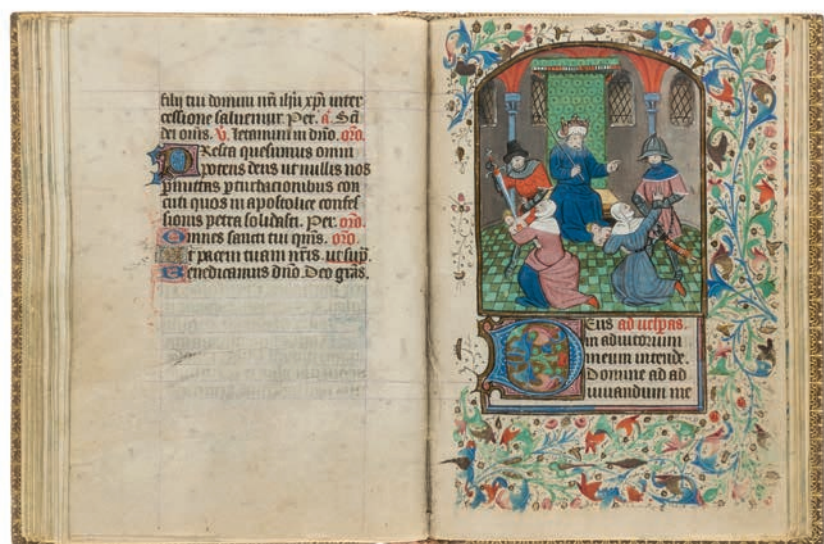 filij tui domini nri ihu xpi inter
cessione saluemur. Per. a. Sā
dei oms. v. letamini in dno. oro.
Presta quesumus omni
potens deus ut nullis nos
pmittas pturbacionibus con
cuti quos in apostolice confes
sionis petra solidasti. Per. oro.
Omnes sancti tui qms. oro.
Et pacem tuam nris. ut sup.
Benedicamus dno. Deo gras.
Deus ad uesperas.
in adiutorium
meum intende.
Domine ad ad
iuuandum me